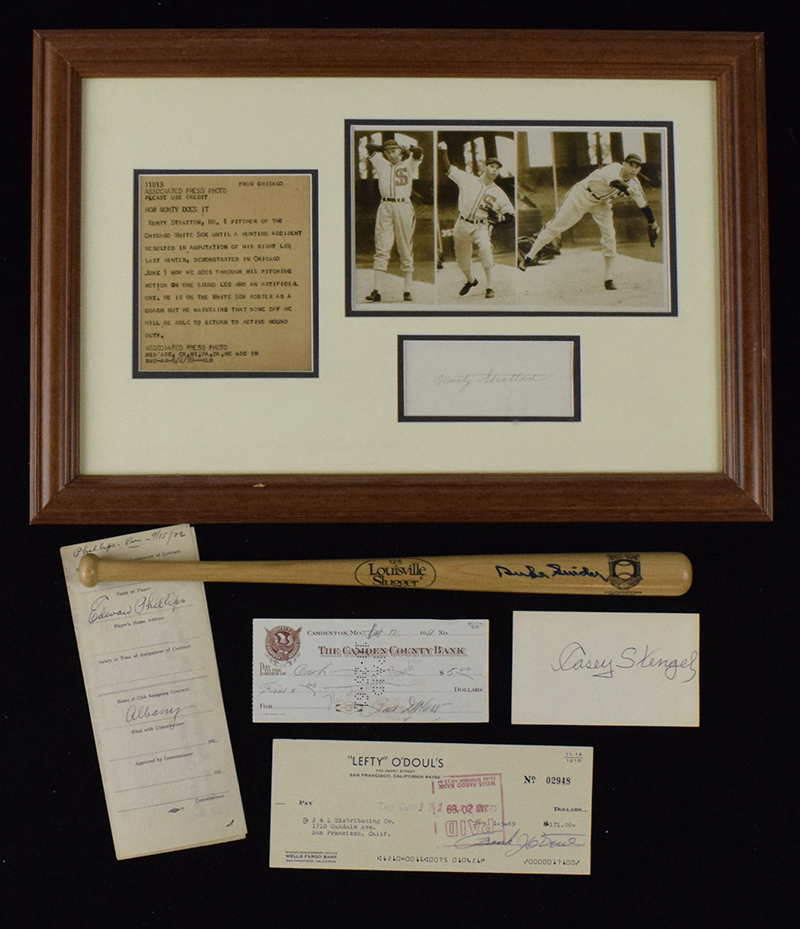 11813 FROM CHICAGO
ASSOCIATED PRESS PHOTO
PLEASE USE CREDIT
HOW MONTY DOES IT
MONTY STRATTON, NO. 1 PITCHER OF THE
CHICAGO WHITE SOX UNTIL A HUNTING ACCIDENT
RESULTED IN AMPUTATION OF HIS RIGHT LEG
LAST WINTER, DEMONSTRATED IN CHICAGO
JUNE 1 HOW HE GOES THROUGH HIS PITCHING
MOTION ON ONE SOUND LEG AND AN ARTIFICIAL
ONE. HE IS ON THE WHITE SOX ROSTER AS A
COACH BUT HE MAINTAINS THAT SOME DAY HE
WILL BE ABLE TO RETURN TO ACTIVE MOUND
DUTY.
ASSOCIATED PRESS PHOTO
S
S
Monty Stratton
Phillips 9/15/22
Assignment of Contract
Name of Player
Edward Phillips
Player's Home Address:
Salary at Time of Assignment of Contract:
Name of Club Assigning Contract:
Albany
Filed with Commissioner
Approved by Commissioner
Commissioner
125
Louisville
Slugger
Duke Snider
CAMDENTON, MO. No.
THE CAMDEN COUNTY BANK
PAY TO THE ORDER OF Cash $5.00
DOLLARS
FOR
Casey Stengel
"LEFTY" O'DOUL'S
SAN FRANCISCO, CALIFORNIA
No 02948
PAY DOLLARS
J & L Distributing Co.
1710 Oakdale Ave.
San Francisco, Calif.
$171.00
PAID
WELLS FARGO BANK
Frank J O'Doul
WELLS FARGO BANK
SAN FRANCISCO, CALIFORNIA